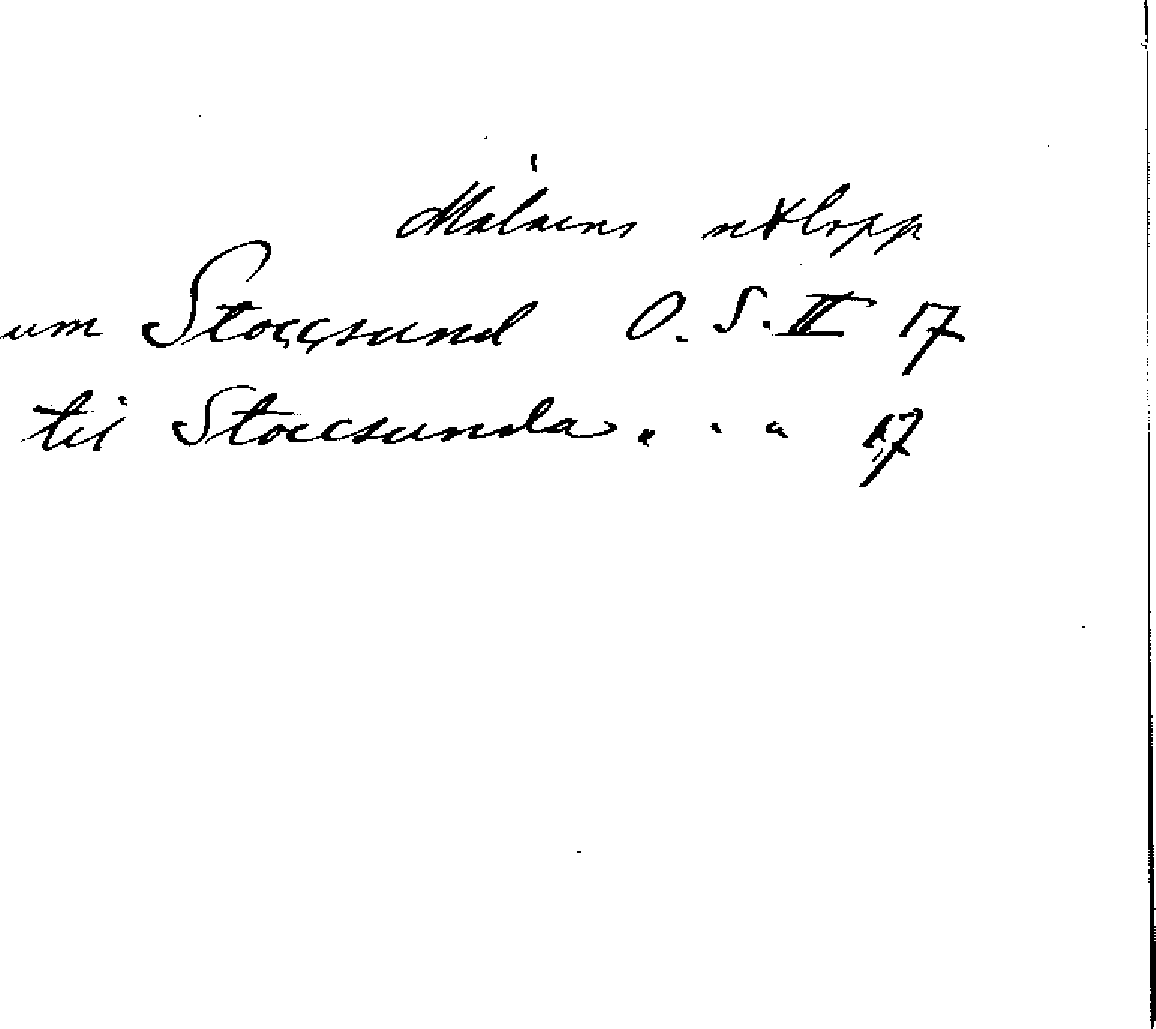 Mälarens utlopp
um Stocçsund O. S. II 17
til Stoccsunda . . " 17